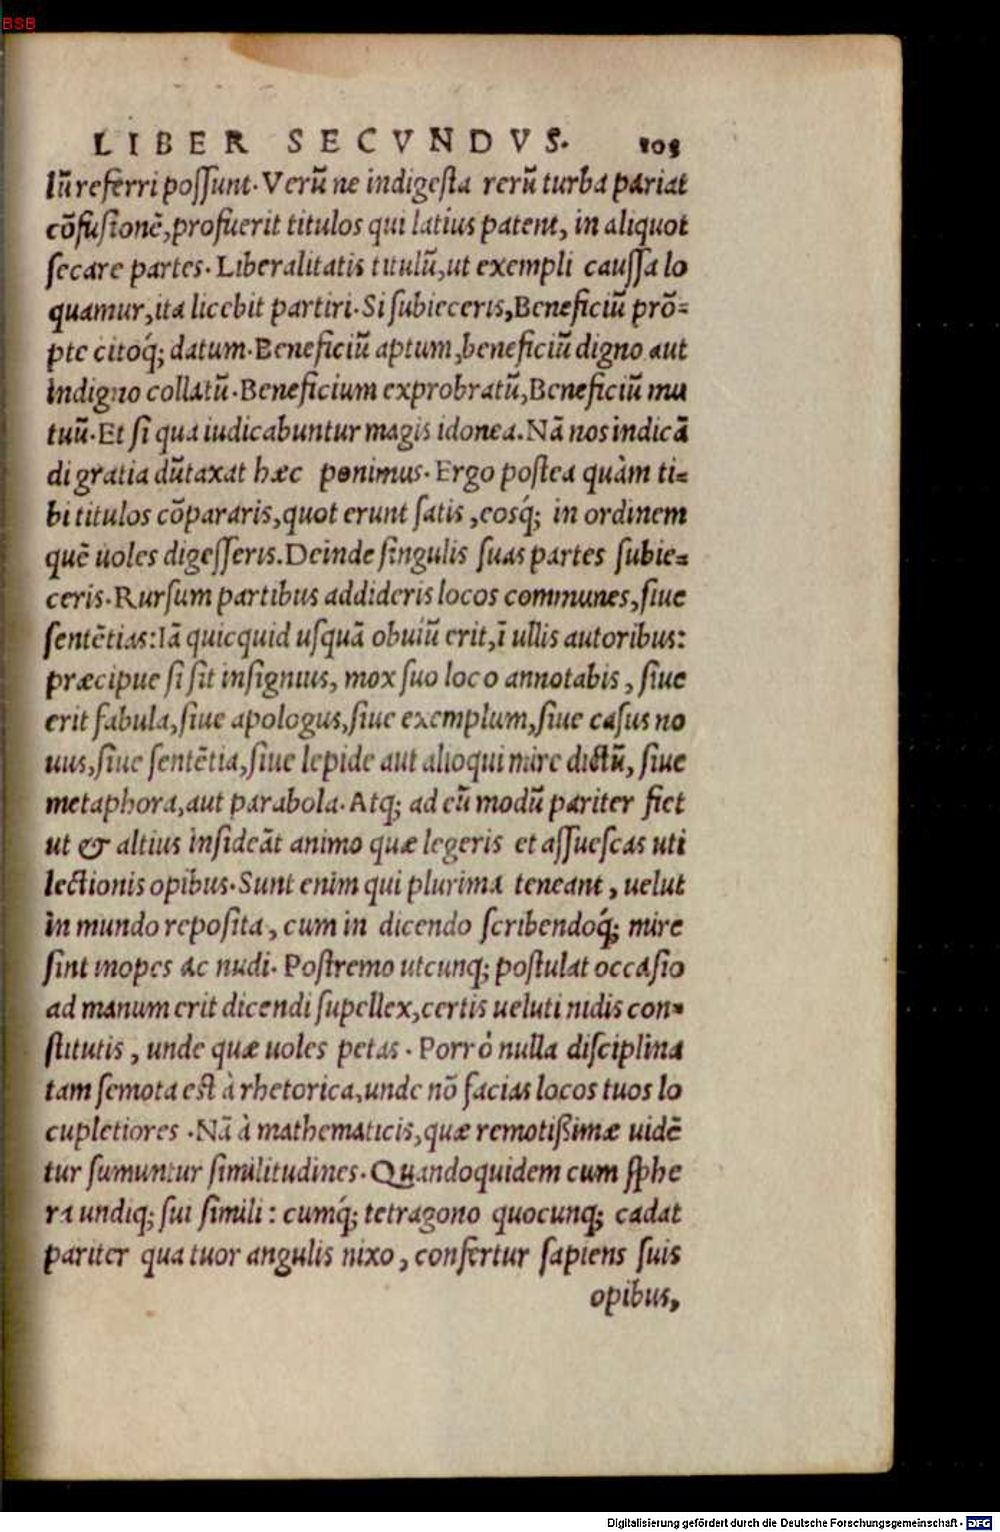 BSB
LIBER SECVNDVS. 105
lũ referri poſſunt. Verũ ne indigeſta rerũ turba pariat
cõfuſionẽ, profuerit titulos qui latius patent, in aliquot
ſecare partes. Liberalitatis titulũ, ut exempli cauſſa lo
quamur, ita licebit partiri. Si ſubieceris, Beneficiũ prõ=
pte citoq́; datum. Beneficiũ aptum, beneficiũ digno aut
indigno collatũ. Beneficium exprobratũ, Beneficiũ mu
tuũ. Et ſi qua iudicabuntur magis idonea. Nã nos indicã
di gratia dũtaxat hæc ponimus. Ergo poſtea quàm ti=
bi titulos cõpararis, quot erunt ſatis, eosq́; in ordinem
quẽ uoles digeſſeris. Deinde ſingulis ſuas partes ſubie=
ceris. Rurſum partibus addideris locos communes, ſiue
ſentẽtias: Iã quicquid uſquã obuiũ erit, ĩ ullis autoribus:
præcipue ſi ſit inſignius, mox ſuo loco annotabis, ſiue
erit fabula, ſiue apologus, ſiue exemplum, ſiue caſus no
uus, ſiue ſentẽtia, ſiue lepide aut alioqui mire dictũ, ſiue
metaphora, aut parabola. Atq; ad eũ modũ pariter fiet
ut & altius inſideãt animo quæ legeris et aſſueſcas uti
lectionis opibus. Sunt enim qui plurima teneant, uelut
in mundo repoſita, cum in dicendo ſcribendoq́; mire
ſint inopes ac nudi. Poſtremo utcunq; poſtulat occaſio
ad manum erit dicendi ſupellex, certis ueluti nidis con=
ſtitutis, unde quæ uoles petas. Porrò nulla diſciplina
tam ſemota eſt à rhetorica, unde nõ facias locos tuos lo
cupletiores. Nã à mathematicis, quæ remotißimæ uidẽ
tur ſumuntur ſimilitudines. Quandoquidem cum ſphe
ra undiq; ſui ſimili: cumq́; tetragono quocunq; cadat
pariter quatuor angulis nixo, confertur ſapiens ſuis
opibus,
Digitalisierung gefördert durch die Deutsche Forschungsgemeinschaft - DFG